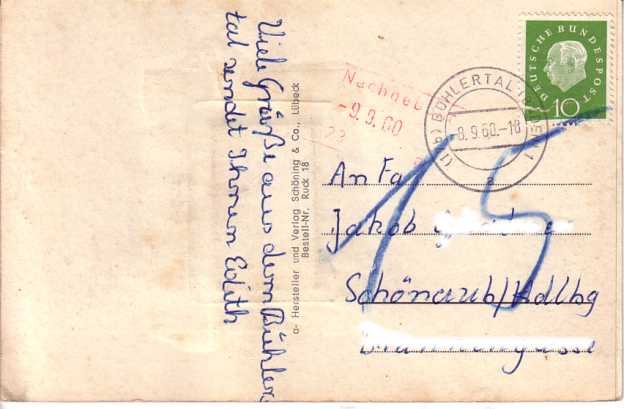 Viele Grüße aus dem Bühler-
tal sendet Ihnen Edith
a- Hersteller und Verlag Schöning & Co., Lübeck
Bestell-Nr. Ruck 18
Nachgeb
-9.9.60
23
(17b) BÜHLERTAL
-8.9.60.-18
1
DEUTSCHE BUNDESPOST
10
15
An Fa.
Jakob
Schönau b/Hdlbg